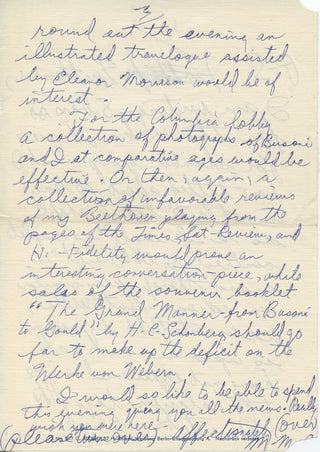 3
round out the evening an
illustrated travelogue assisted
by Eleanor Morrison would be of
interest.
For the Columbia lobby
a collection of photographs of Busoni
and I at comparative ages would be
effective. Or then, again, a
collection of unfavorable reviews
of my Beethoven playing from the
pages of the Times, Sat-Review, and
Hi-Fidelity would prove an
interesting conversation-piece, while
sales of the souvenir booklet
"The Grand Manner-from Busoni
to Gould" by H. C. Schonberg should go
far to make up the deficit on the
Werke von Webern.
I would so like to be able to spend
this evening giving you all the news. Really
wish you were here -
(please turn over) affectionately (over